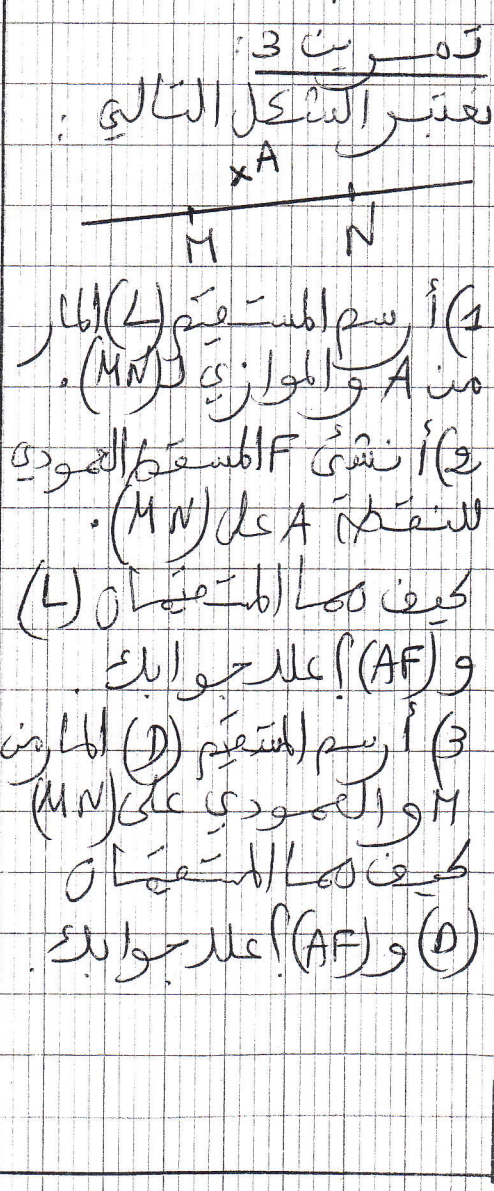 تمرين 3:
نعتبر الشكل التالي:
×A
M N
1) أرسم المستقيم (L) المار
من A والموازي لـ (MN).
2) أنشئ F المسقط العمودي
للنقطة A على (MN).
كيف هما المستقيمان (L)
و (AF)؟ علل جوابك.
3) أرسم المستقيم (D) المار من
M والعمودي على (MN)
كيف هما المستقيمان
(D) و (AF)؟ علل جوابك.